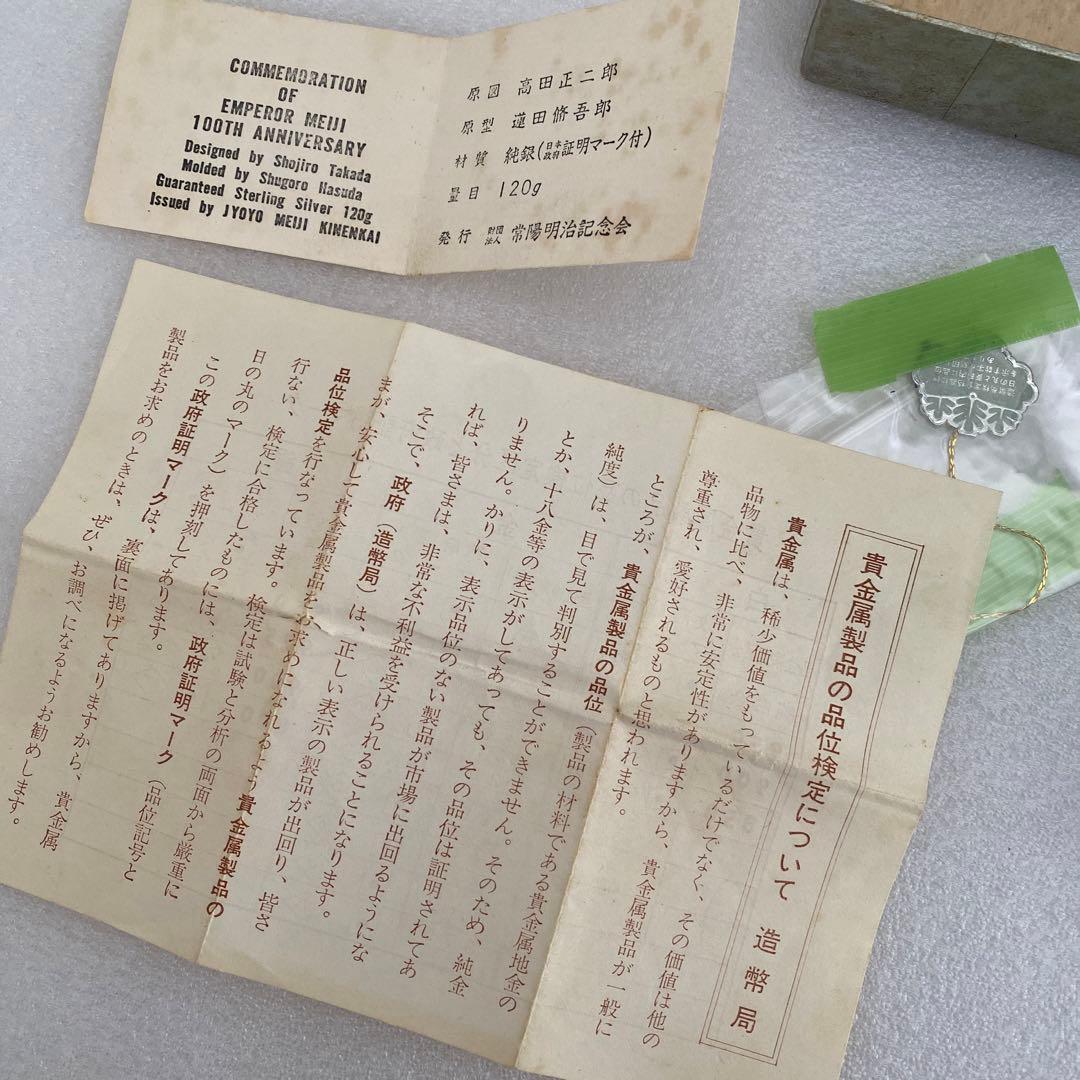 COMMEMORATION
OF
EMPEROR MEIJI
100TH ANNIVERSARY
Designed by Shojiro Takada
Molded by Shugoro Hasuda
Guaranteed Sterling Silver 120g
Issued by JYOYO MEIJI KINENKAI
原図 高田正二郎
原型 蓮田脩吾郎
材質 純銀(日本政府証明マーク付)
量目 120g
発行 財団法人 常陽明治記念会
貴金属製品の品位検定について 造幣局
貴金属は、稀少価値をもっているだけでなく、その価値は他の
品物に比べ、非常に安定性がありますから、貴金属製品が一般に
尊重され、愛好されるものと思われます。
ところが、貴金属製品の品位(製品の材料である貴金属地金の
純度)は、目で見て判別することができません。そのため、純金
とか、十八金等の表示がしてあっても、その品位は証明されてあ
りません。かりに、表示品位のない製品が市場に出回るようにな
れば、皆さまは、非常な不利益を受けられることになります。
そこで、政府(造幣局)は、正しい表示の製品が出回り、皆さ
まが、安心して貴金属製品をお求めになれるよう貴金属製品の
品位検定を行なっています。検定は試験と分析の両面から厳重に
行ない、検定に合格したものには、政府証明マーク(品位記号と
日の丸のマーク)を押刻してあります。
この政府証明マークは、裏面に掲げてありますから、貴金属
製品をお求めのときは、ぜひ、お調べになるようお勧めします。